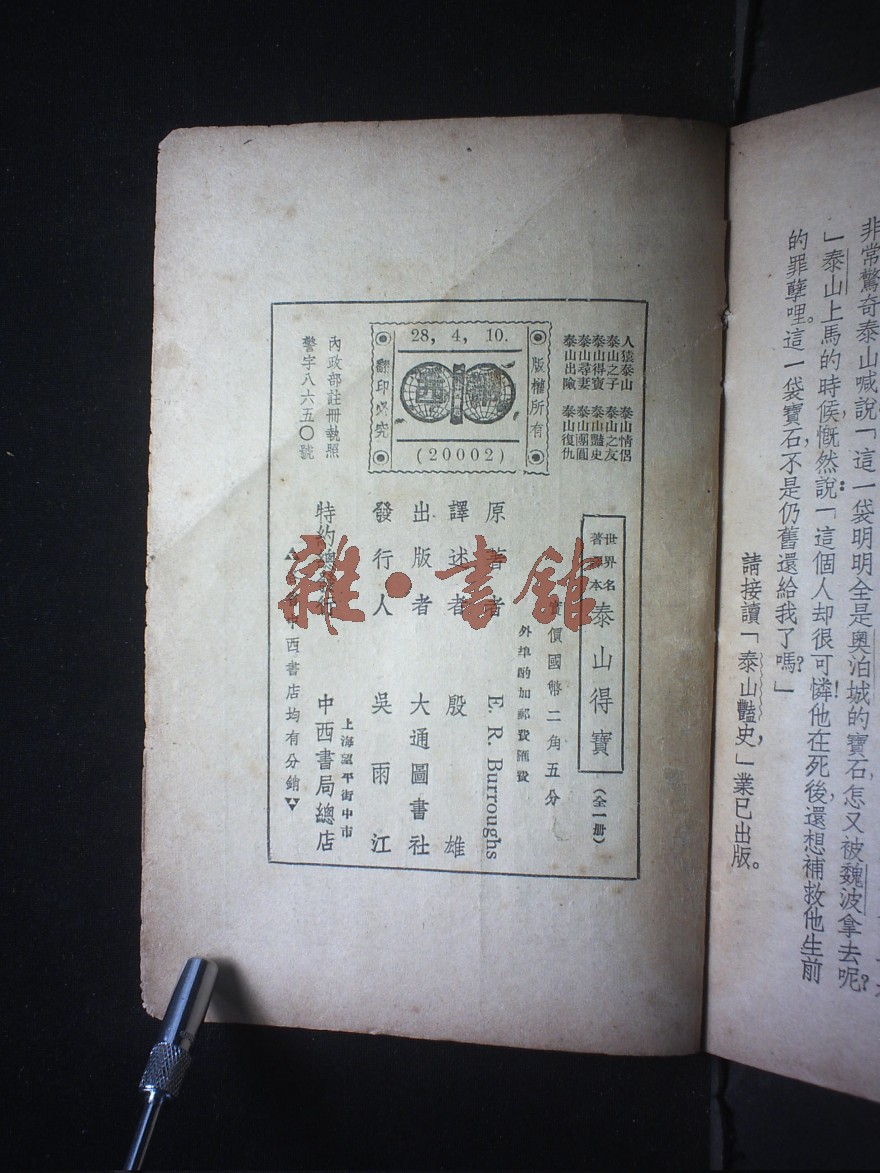 非常驚奇泰山喊說「這一袋明明全是奧泊城的寶石,怎又被魏波拿去呢?
」泰山上馬的時候,慨然說:「這個人却很可憐!他在死後,還想補救他生前
的罪孽哩。這一袋寶石,不是仍舊還給我了嗎?」
請接讀「泰山豔史,」業已出版。
人猿泰山 泰山情侶
泰山之子 泰山之友
泰山得寶 泰山豔史
泰山尋妻 泰山團圓
泰山出險 泰山復仇
版權所有
28, 4, 10.
(20002)
翻印必究
內政部註冊執照
警字八六五〇號
世界名
著譯本
泰山得寶
(全一册)
價國幣二角五分
外埠酌加郵費匯費
原著者 E. R. Burroughs
譯述者 殷雄
出版者 大通圖書社
發行人 吳雨江
上海望平街中市
特約總發行 中西書局總店
中西書店均有分銷
雜·書館